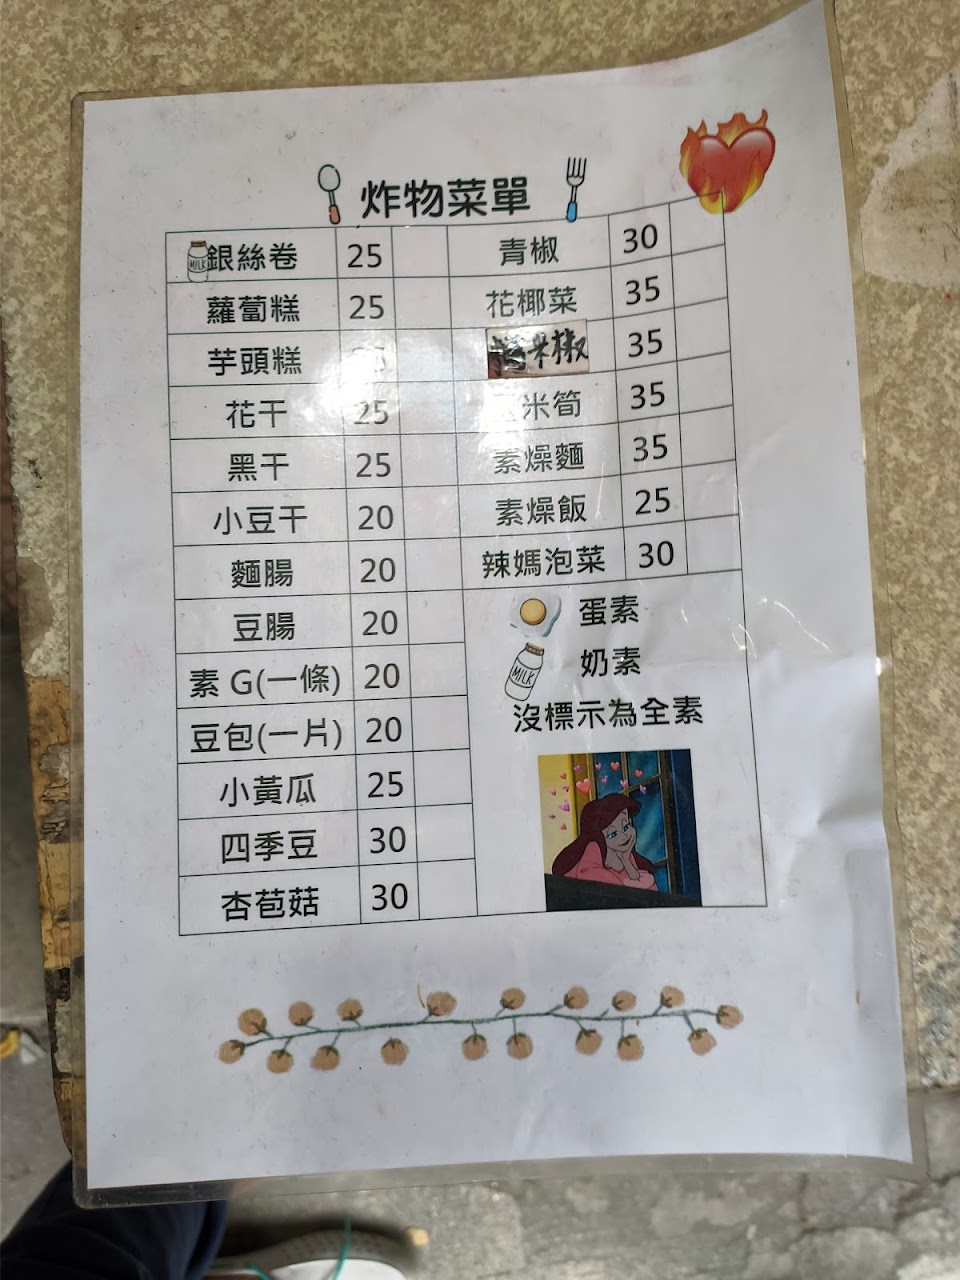 炸物菜單
MILK 銀絲卷 25
蘿蔔糕 25
芋頭糕
花干 25
黑干 25
小豆干 20
麵腸 20
豆腸 20
素 G(一條) 20
豆包(一片) 20
小黃瓜 25
四季豆 30
杏苞菇 30
青椒 30
花椰菜 35
椒 35
米筍 35
素燥麵 35
素燥飯 25
辣媽泡菜 30
蛋素
MILK 奶素
沒標示為全素